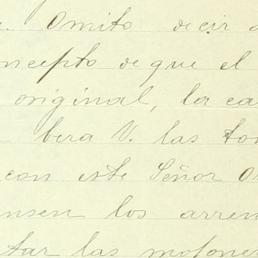 . Omito decir a
ncepto de que el
original, la ca
bera V. las to
con este Señor O
nsen los arren
tar las mojone